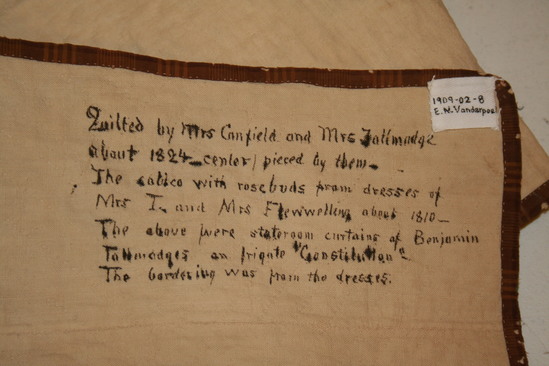 1909-02-8
E.N. Vanderpoel
Quilted by Mrs Canfield and Mrs Tallmadge
about 1824 center pieced by them-
The calico with rosebuds from dresses of
Mrs T. and Mrs Flewwelling about 1810-
The above were stateroom curtains of Benjamin
Tallmadges on frigate "Constitution"-
The bordering was from the dresses.